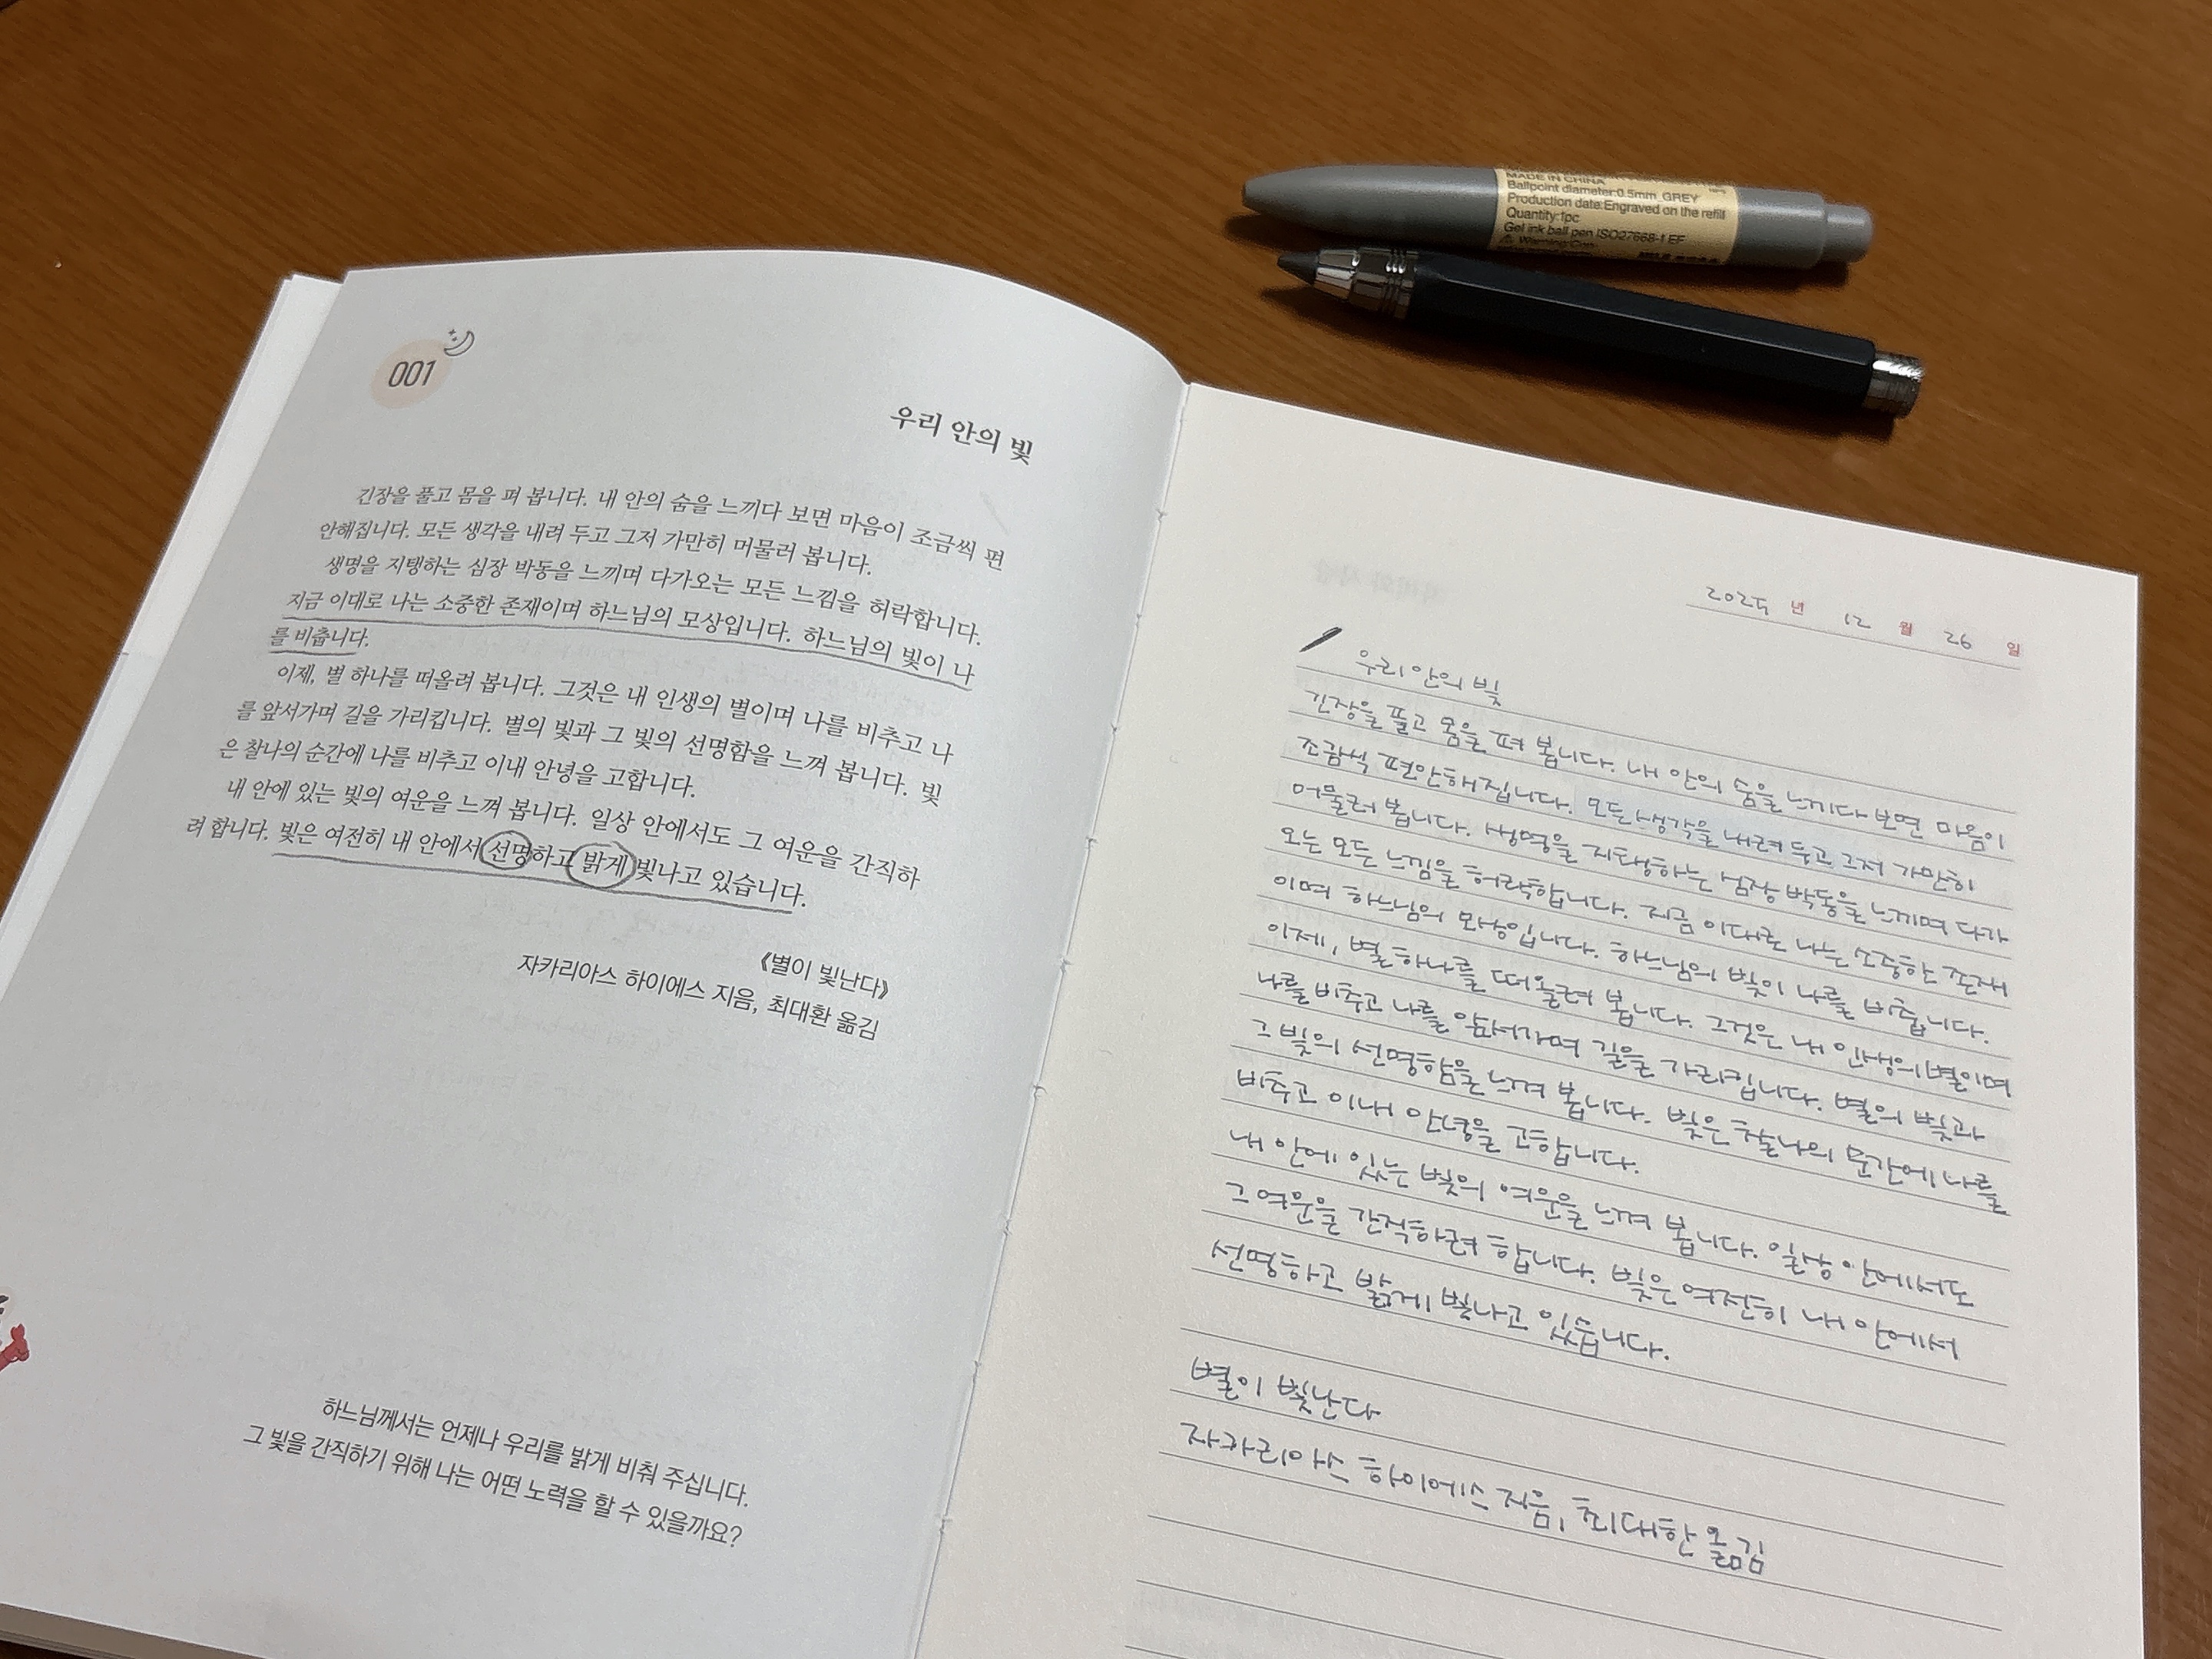 001
우리 안의 빛
긴장을 풀고 몸을 펴 봅니다. 내 안의 숨을 느끼다 보면 마음이 조금씩 편
안해집니다. 모든 생각을 내려 두고 그저 가만히 머물러 봅니다.
생명을 지탱하는 심장 박동을 느끼며 다가오는 모든 느낌을 허락합니다.
지금 이대로 나는 소중한 존재이며 하느님의 모상입니다. 하느님의 빛이 나
를 비춥니다.
이제, 별 하나를 떠올려 봅니다. 그것은 내 인생의 별이며 나를 비추고 나
를 앞서가며 길을 가리킵니다. 별의 빛과 그 빛의 선명함을 느껴 봅니다. 빛
은 찰나의 순간에 나를 비추고 이내 안녕을 고합니다.
내 안에 있는 빛의 여운을 느껴 봅니다. 일상 안에서도 그 여운을 간직하
려 합니다. 빛은 여전히 내 안에서 선명하고 밝게 빛나고 있습니다.
《별이 빛난다》
자카리아스 하이에스 지음, 최대환 옮김
하느님께서는 언제나 우리를 밝게 비춰 주십니다.
그 빛을 간직하기 위해 나는 어떤 노력을 할 수 있을까요?
MADE IN CHINA
Ballpoint diameter:0.5mm GREY
Production date:Engraved on the refill
Quantity:1pc
Gel ink ball pen ISO27668-1 EF
Warning:
2025 년 12 월 26 일
우리 안의 빛
긴장을 풀고 몸을 펴 봅니다. 내 안의 숨을 느끼다 보면 마음이
조금씩 편안해집니다. 모든 생각을 내려 두고 그저 가만히
머물러 봅니다. 생명을 지탱하는 심장 박동을 느끼며 다가
오는 모든 느낌을 허락합니다. 지금 이대로 나는 소중한 존재
이며 하느님의 모상입니다. 하느님의 빛이 나를 비춥니다.
이제, 별 하나를 떠올려 봅니다. 그것은 내 인생의 별이며
나를 비추고 나를 앞서가며 길을 가리킵니다. 별의 빛과
그 빛의 선명함을 느껴 봅니다. 빛은 찰나의 순간에 나를
비추고 이내 안녕을 고합니다.
내 안에 있는 빛의 여운을 느껴 봅니다. 일상 안에서도
그 여운을 간직하려 합니다. 빛은 여전히 내 안에서
선명하고 밝게 빛나고 있습니다.
별이 빛난다
자카리아스 하이에스 지음, 최대환 옮김